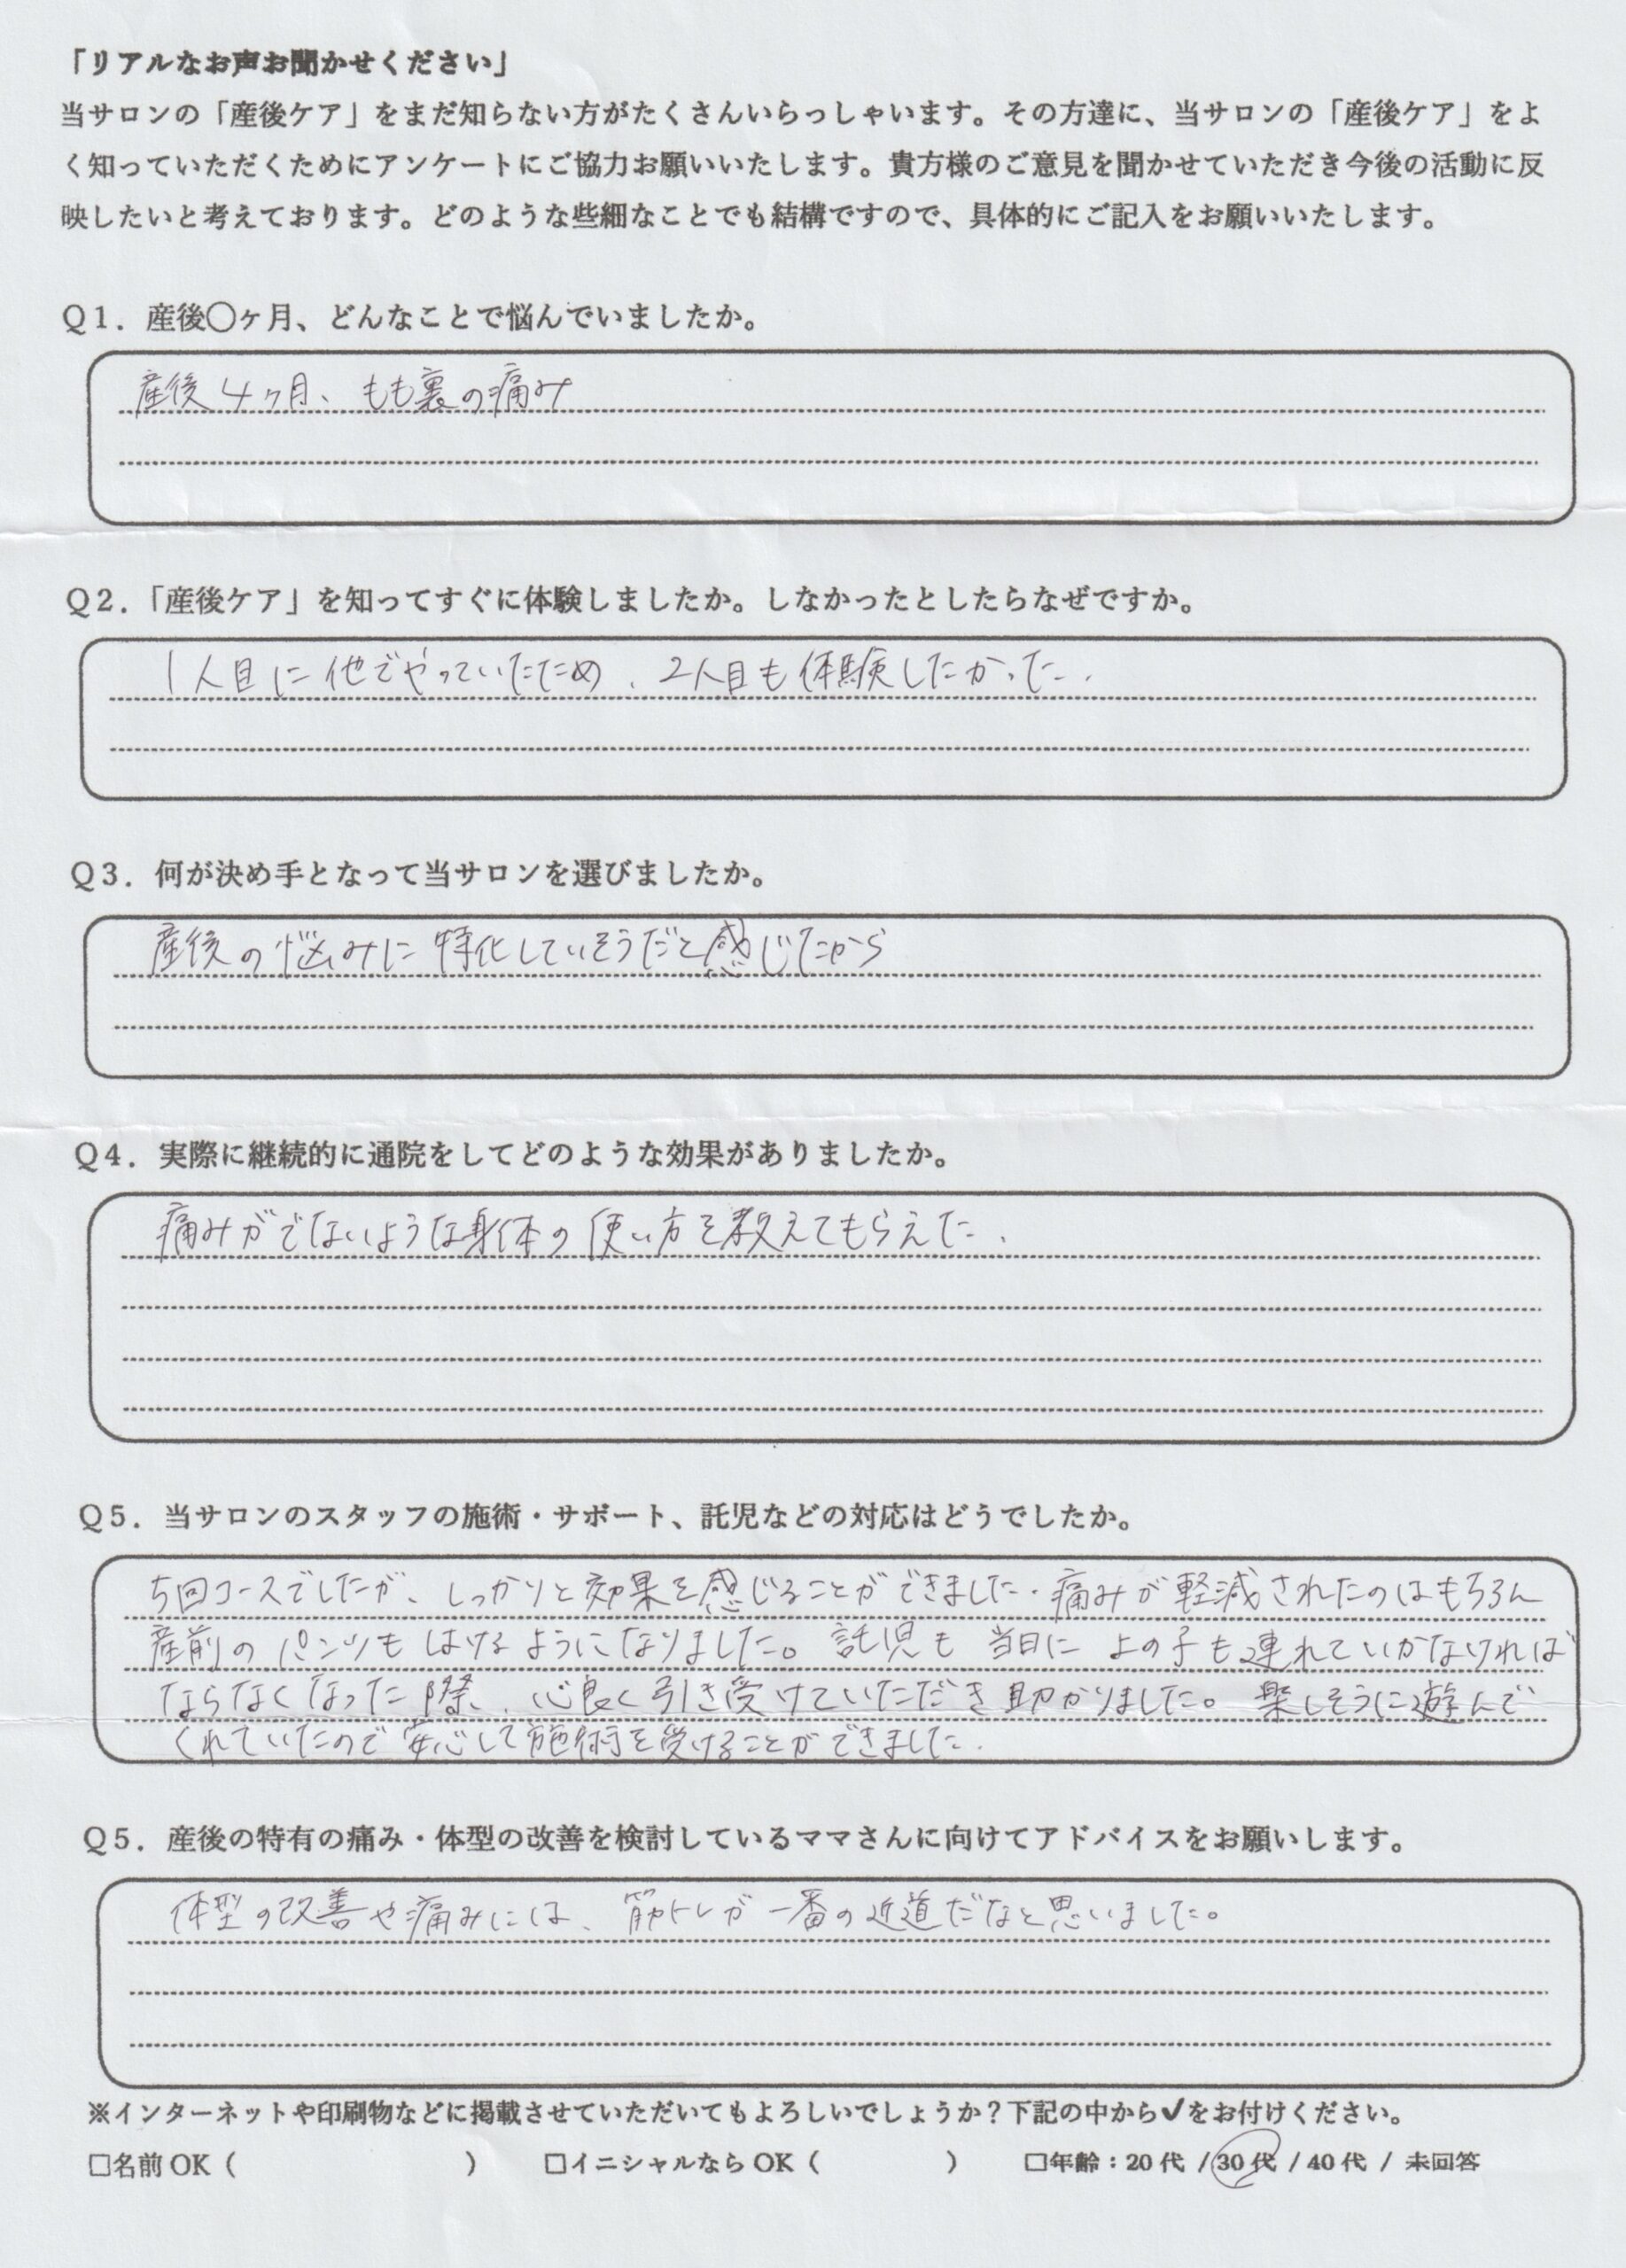 「リアルなお声お聞かせください」
当サロンの「産後ケア」をまだ知らない方がたくさんいらっしゃいます。その方達に、当サロンの「産後ケア」をよ
く知っていただくためにアンケートにご協力お願いいたします。貴方様のご意見を聞かせていただき今後の活動に反
映したいと考えております。どのような些細なことでも結構ですので、具体的にご記入をお願いいたします。
Q1．産後〇ヶ月、どんなことで悩んでいましたか。
産後4ヶ月、もも裏の痛み
Q2．「産後ケア」を知ってすぐに体験しましたか。しなかったとしたらなぜですか。
1人目に他でやっていたため、2人目も体験したかった.
Q3．何が決め手となって当サロンを選びましたか。
産後の悩みに特化していそうだと感じたから
Q4．実際に継続的に通院をしてどのような効果がありましたか。
痛みがでないような身体の使い方を教えてもらえた.
Q5．当サロンのスタッフの施術・サポート、託児などの対応はどうでしたか。
5回コースでしたが、しっかりと効果を感じることができました.痛みが軽減されたのはもちろん
産前のパンツもはけるようになりました。託児も当日に上の子も連れていかなければ
ならなくなった際、心良く引き受けていただき助かりました。楽しそうに遊んで
くれていたので安心して施術を受けることができました.
Q5．産後の特有の痛み・体型の改善を検討しているママさんに向けてアドバイスをお願いします。
体型の改善や痛みには、筋トレが一番の近道だなと思いました。
※インターネットや印刷物などに掲載させていただいてもよろしいでしょうか？下記の中から✓をお付けください。
□名前 OK（　　　　　　　） □イニシャルなら OK（　　　　） □年齢：20代 / 30代 / 40代 / 未回答